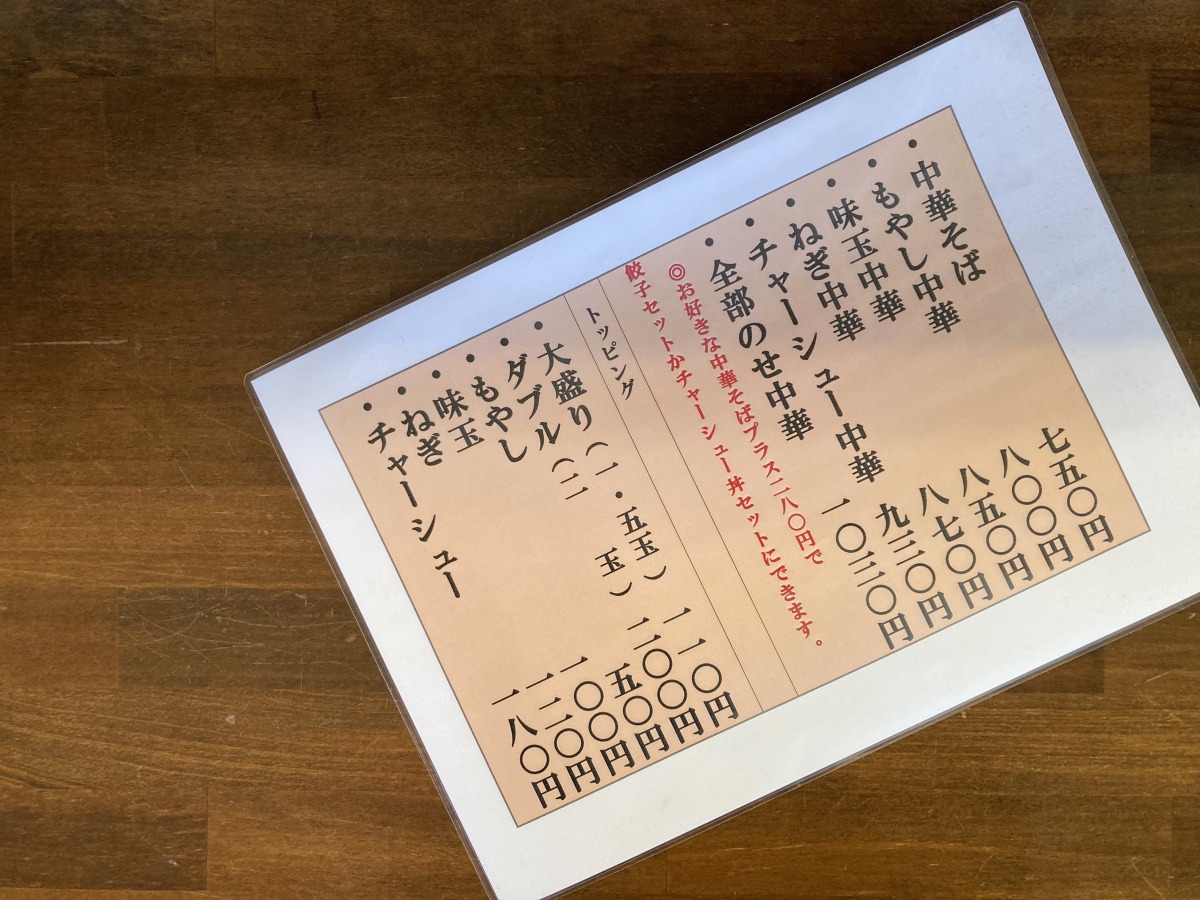 ・中華そば 七五〇円
・もやし中華 八〇〇円
・味玉中華 八五〇円
・ねぎ中華 八七〇円
・チャーシュー中華 九三〇円
・全部のせ中華 一〇三〇円
◎お好きな中華そばプラス二八〇円で
餃子セットかチャーシュー丼セットにできます。
トッピング
・大盛り（一・五玉） 一一〇円
・ダブル（二 玉） 二〇〇円
・もやし 五〇円
・味玉 一〇〇円
・ねぎ 一二〇円
・チャーシュー 一八〇円